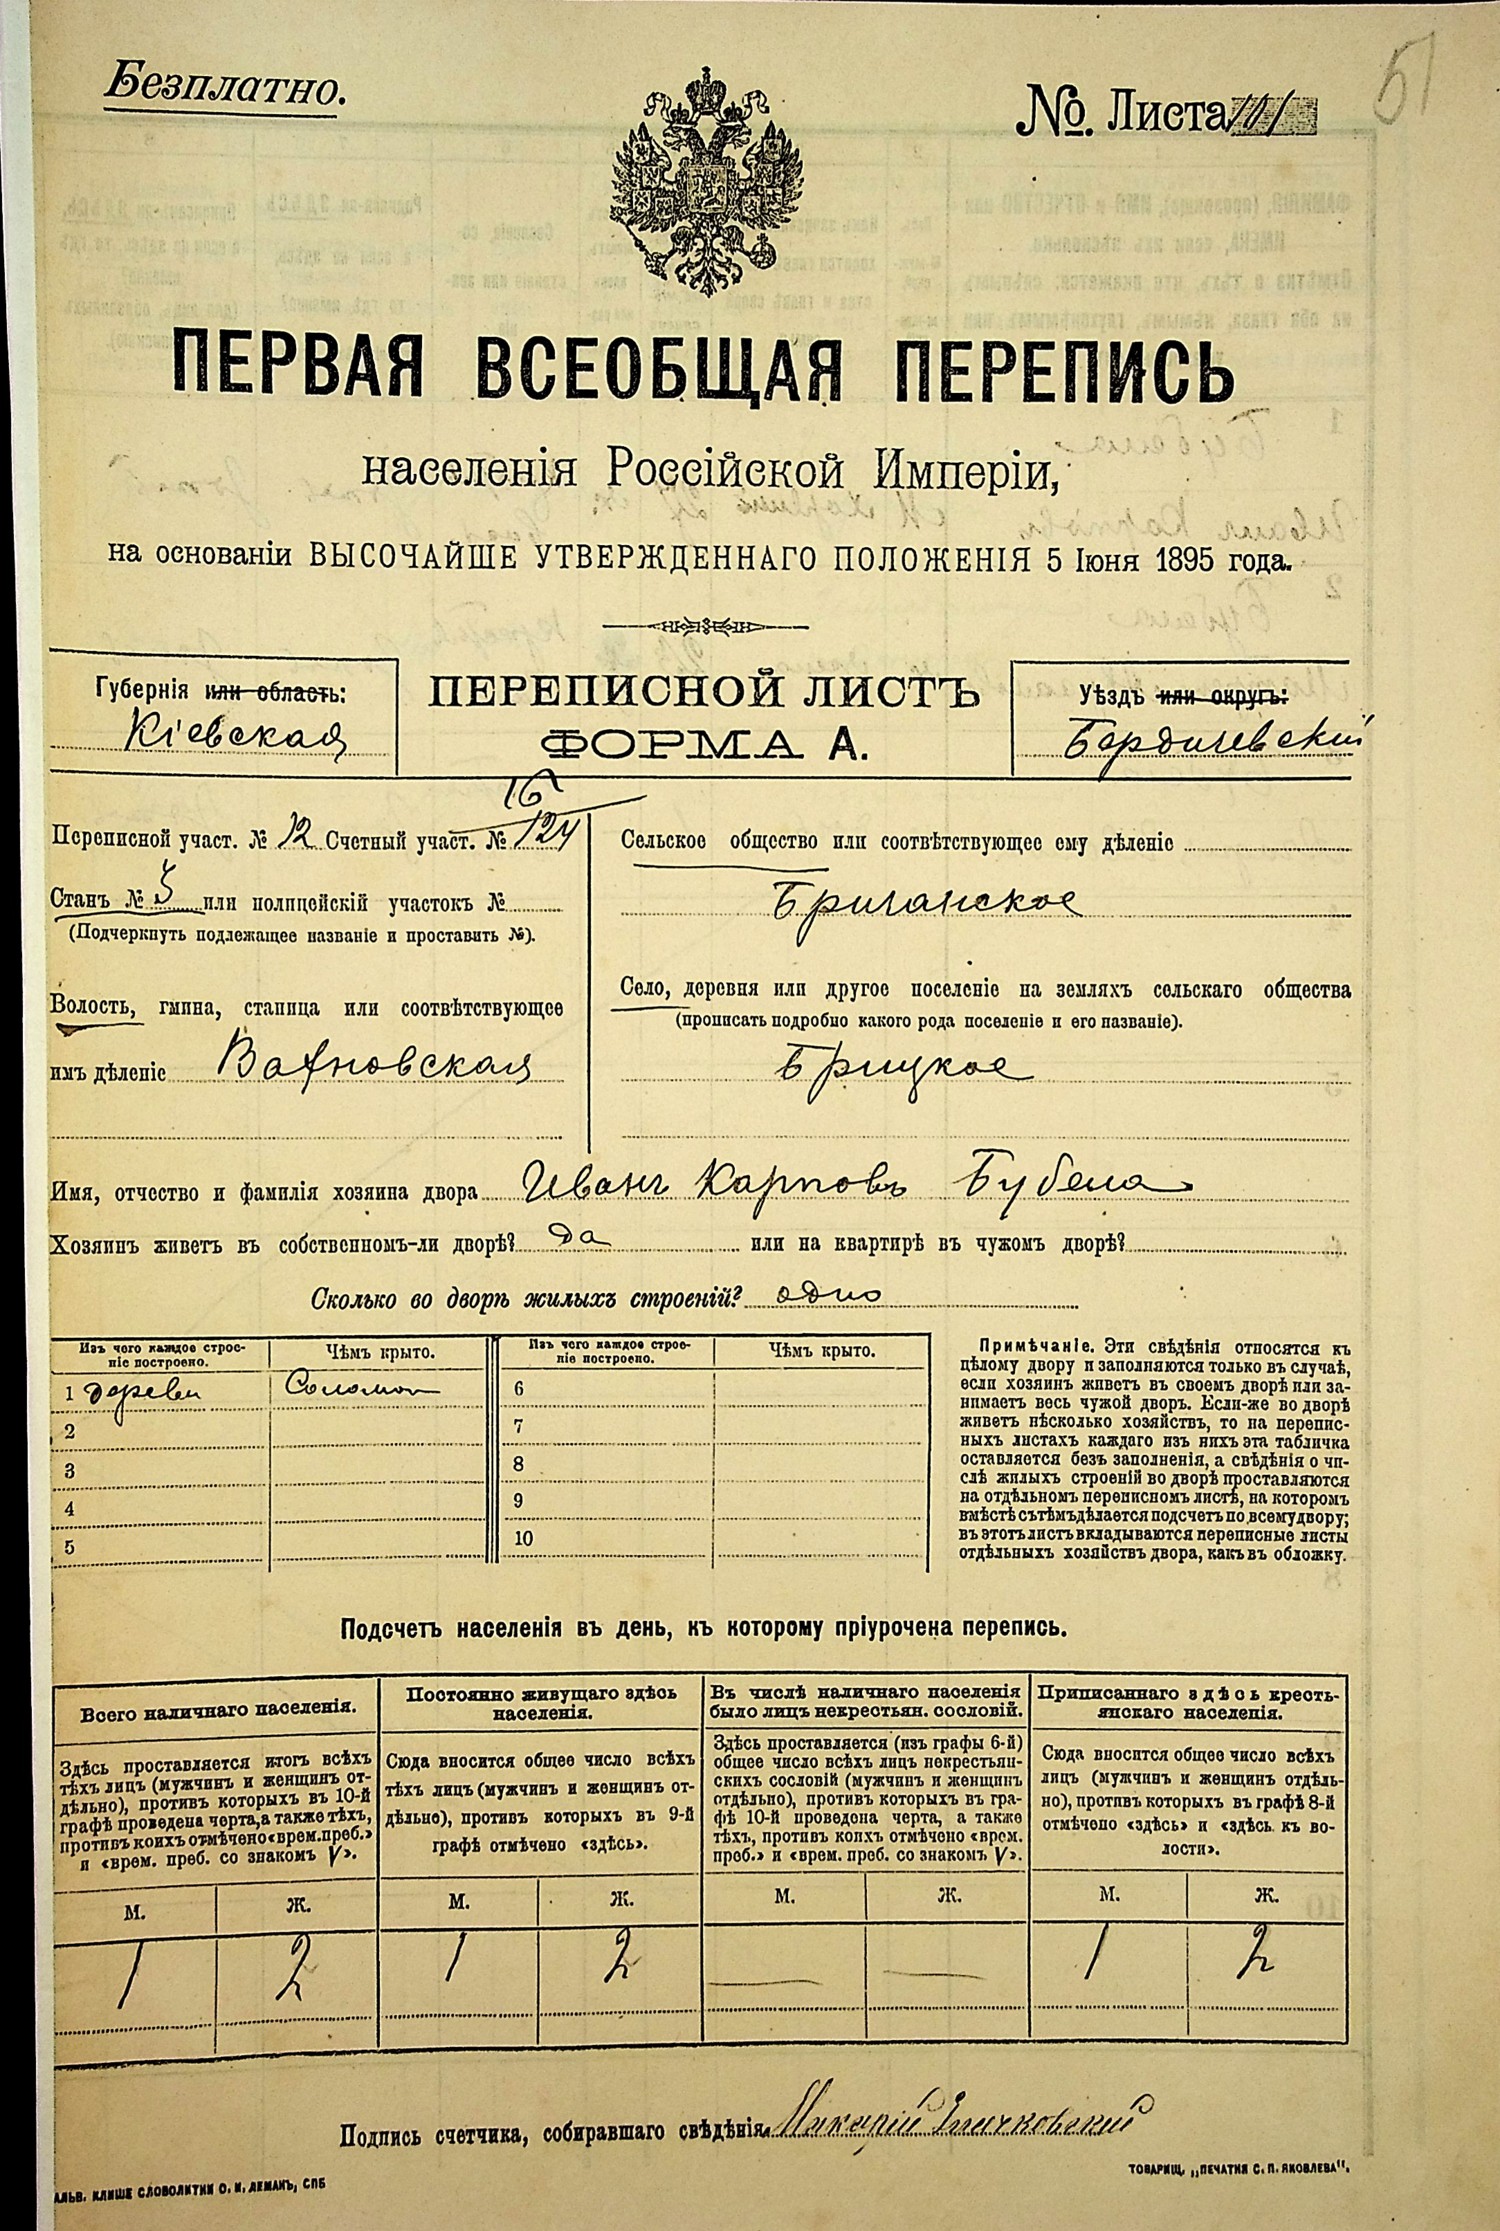 Безплатно.
№. Листа 101
51
ПЕРВАЯ ВСЕОБЩАЯ ПЕРЕПИСЬ
населенія Россійской Имперіи,
на основаніи ВЫСОЧАЙШЕ УТВЕРЖДЕННАГО ПОЛОЖЕНІЯ 5 Іюня 1895 года.
Губернія или область:
Кіевская
ПЕРЕПИСНОЙ ЛИСТЪ
ФОРМА А.
Уѣздъ или округъ:
Бердичевский
16
Переписной участ. № 12 Счетный участ. № 124
Станъ № 3 или полицейскій участокъ №
(Подчеркнуть подлежащее названіе и проставить №).
Волость, гмина, станица или соотвѣтствующее
имъ дѣленіе Вахновская
Сельское общество или соотвѣтствующее ему дѣленіе
Село, деревня или другое поселеніе на земляхъ сельскаго общества
(прописать подробно какого рода поселеніе и его названіе).
Брицкое
Имя, отчество и фамилія хозяина двора Иванъ Карповъ Бубела
Хозяинъ живетъ въ собственномъ-ли дворѣ? да или на квартирѣ въ чужомъ дворѣ?
Сколько во дворѣ жилыхъ строеній? одно
Изъ чего каждое строе-
ніе построено.
Чѣмъ крыто.
Изъ чего каждое строе-
ніе построено.
Чѣмъ крыто.
1 деревян Соломой 6
2 7
3 8
4 9
5 10
Примѣчаніе. Эти свѣдѣнія относятся къ
цѣлому двору и заполняются только въ случаѣ,
если хозяинъ живетъ въ своемъ дворѣ или за-
нимаетъ весь чужой дворъ. Если-же во дворѣ
живетъ нѣсколько хозяйствъ, то на перепис-
ныхъ листахъ каждаго изъ нихъ эта табличка
оставляется безъ заполненія, а свѣдѣнія о чи-
слѣ жилыхъ строеній во дворѣ проставляются
на отдѣльномъ переписномъ листѣ, на которомъ
вмѣстѣ съ тѣмъ дѣлается подсчетъ по всему двору;
въ этотъ листъ вкладываются переписные листы
отдѣльныхъ хозяйствъ двора, какъ въ обложку.
Подсчетъ населенія въ день, къ которому пріурочена перепись.
Всего наличнаго населенія.
Здѣсь проставляется итогъ всѣхъ
тѣхъ лицъ (мужчинъ и женщинъ от-
дѣльно), противъ которыхъ въ 10-й
графѣ проведена черта, а также тѣхъ,
противъ коихъ отмѣчено «врем. преб.»
и «врем. преб. со знакомъ V».
М. Ж.
1 2
Постоянно живущаго здѣсь
населенія.
Сюда вносится общее число всѣхъ
тѣхъ лицъ (мужчинъ и женщинъ от-
дѣльно), противъ которыхъ въ 9-й
графѣ отмѣчено «здѣсь».
М. Ж.
1 2
Въ числѣ наличнаго населенія
было лицъ некрестьян. сословій.
Здѣсь проставляется (изъ графы 6-й)
общее число всѣхъ лицъ некрестьян-
скихъ сословій (мужчинъ и женщинъ
отдѣльно), противъ которыхъ въ гра-
фѣ 10-й проведена черта, а также
тѣхъ, противъ коихъ отмѣчено «врем.
преб.» и «врем. преб. со знакомъ V».
М. Ж.
Приписаннаго здѣсь кресть-
янскаго населенія.
Сюда вносится общее число всѣхъ
лицъ (мужчинъ и женщинъ отдѣль-
но), противъ которыхъ въ графѣ 8-й
отмѣчено «здѣсь» и «здѣсь къ во-
лости».
М. Ж.
1 2
Подпись счетчика, собиравшаго свѣдѣнія Макарій
АЛЬВ. КЛИШЕ СЛОВОЛИТНИ О. И. ЛЕМАНЪ, СПБ
ТОВАРИЩ. „ПЕЧАТНЯ С. П. ЯКОВЛЕВА“.